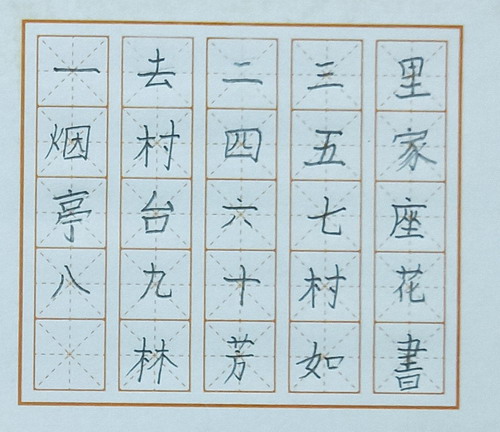 一去二三里
烟村四五家
亭台六七座
八九十村花
林芳如書